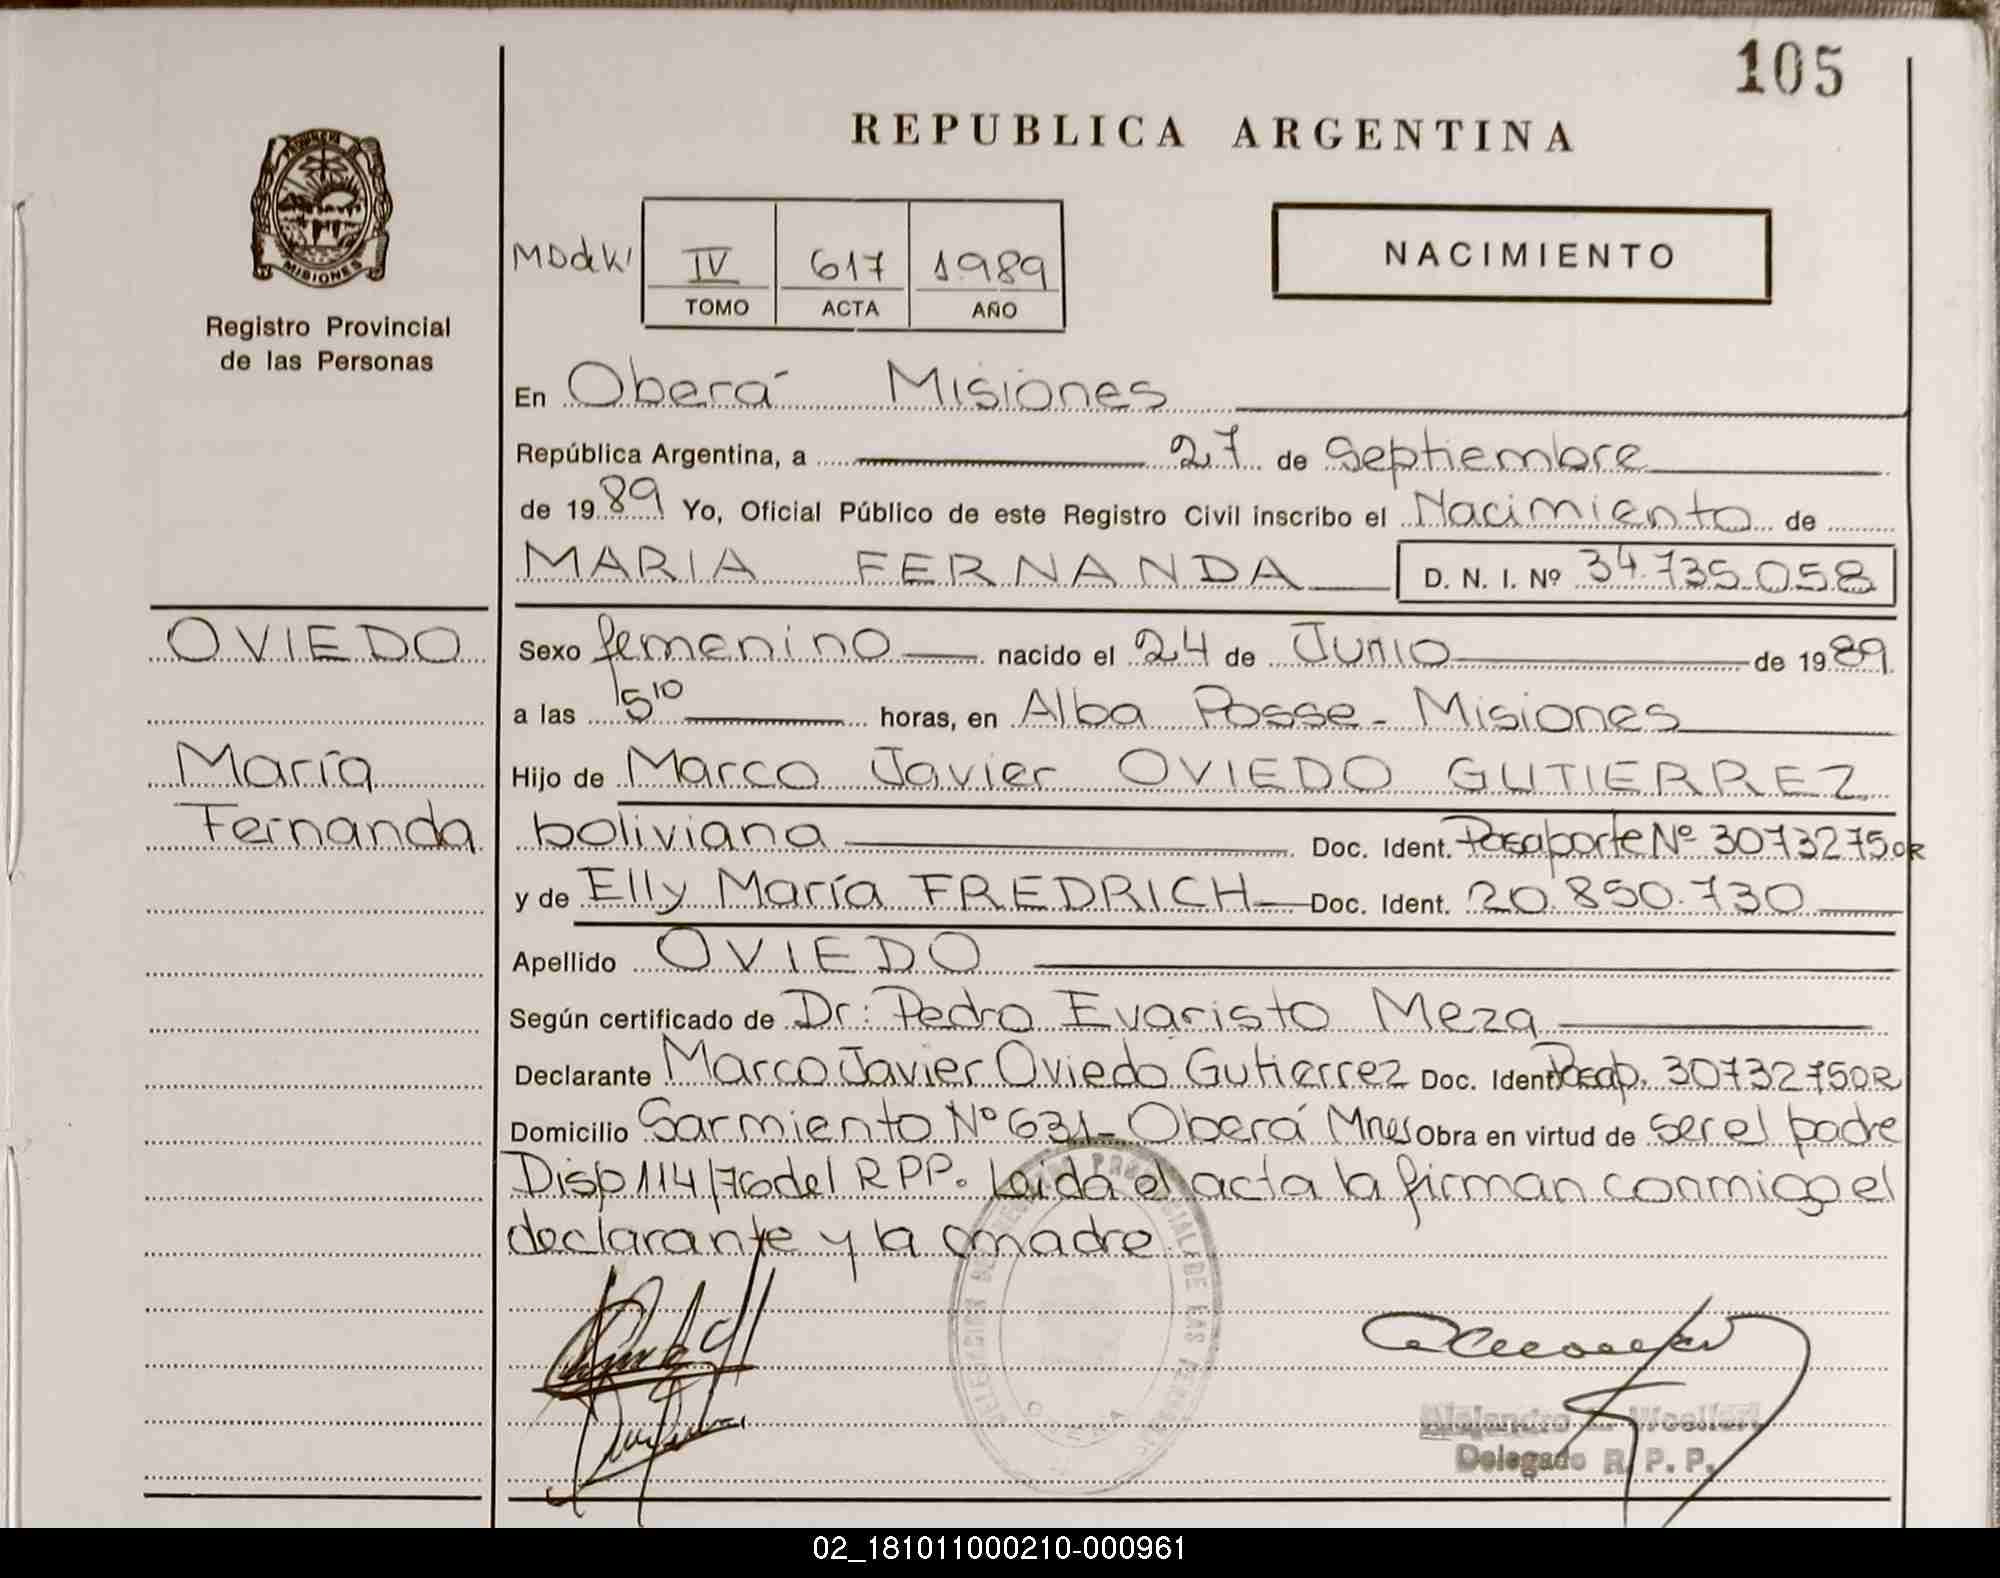 105
REPUBLICA ARGENTINA
MISIONES
Registro Provincial
de las Personas
NACIMIENTO
IV 617 1989
TOMO ACTA AÑO
En Oberá Misiones
República Argentina, a 27 de Septiembre
de 1989 Yo, Oficial Público de este Registro Civil inscribo el Nacimiento de
MARIA FERNANDA D. N. I. Nº 34.735.058
OVIEDO
María
Fernanda
Sexo femenino nacido el 24 de Junio de 1989
a las 15¹⁰ horas, en Alba Posse - Misiones
Hijo de Marco Javier OVIEDO GUTIERREZ
boliviana Doc. Ident. Pasaporte Nº 30732750R
y de Elly María FREDRICH Doc. Ident. 20.850.730
Apellido OVIEDO
Según certificado de Dr: Pedro Evaristo Meza
Declarante Marco Javier Oviedo Gutierrez Doc. Ident. Pasap. 30732750R
Domicilio Sarmiento Nº 631 - Oberá Mnes Obra en virtud de ser el padre
Disp 114/76 del RPP. Leida el acta la firman conmigo el
declarante y la madre
Alejandro
Delegado R. P. P.
02_181011000210-000961